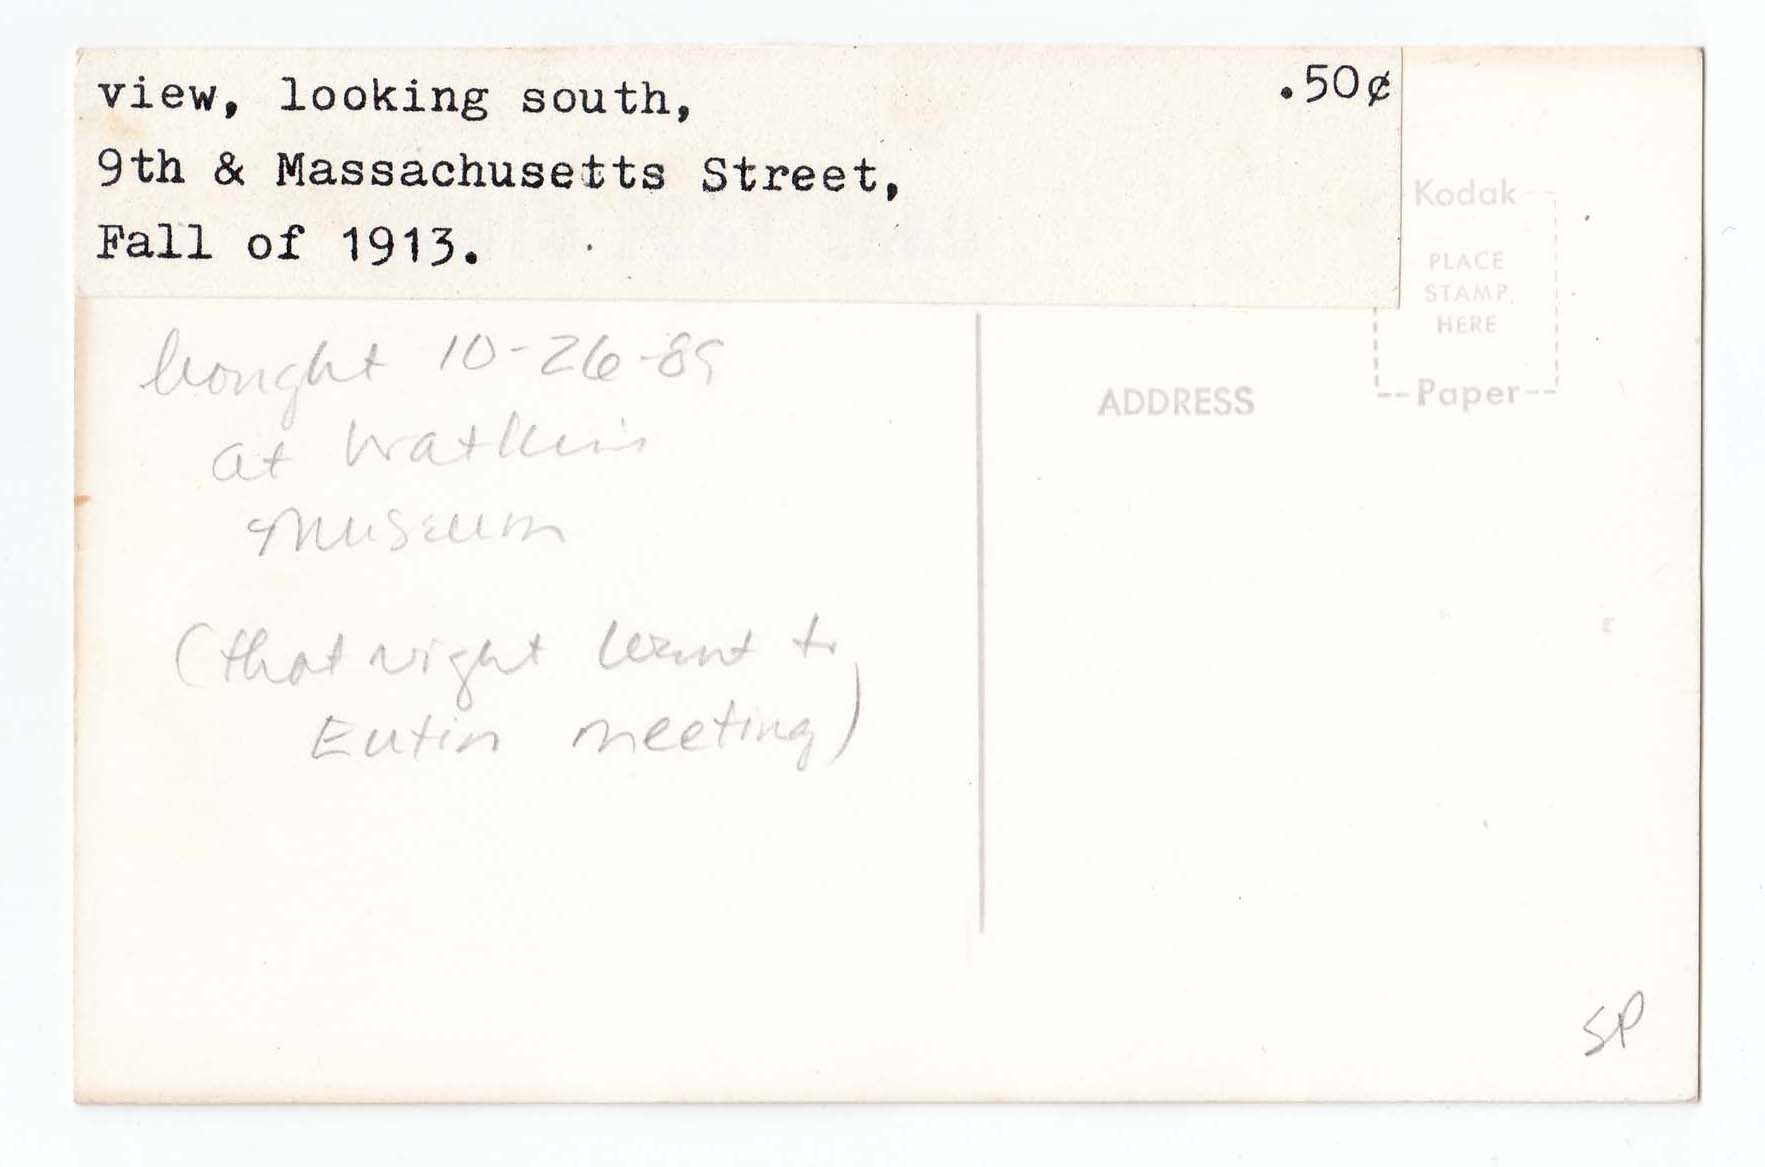 view, looking south,
.50¢
9th & Massachusetts Street,
Fall of 1913.
Kodak
PLACE
STAMP
HERE
Paper
ADDRESS
bought 10-26-89
at Watkins
Museum
(that night went to
Eutin meeting)
SP